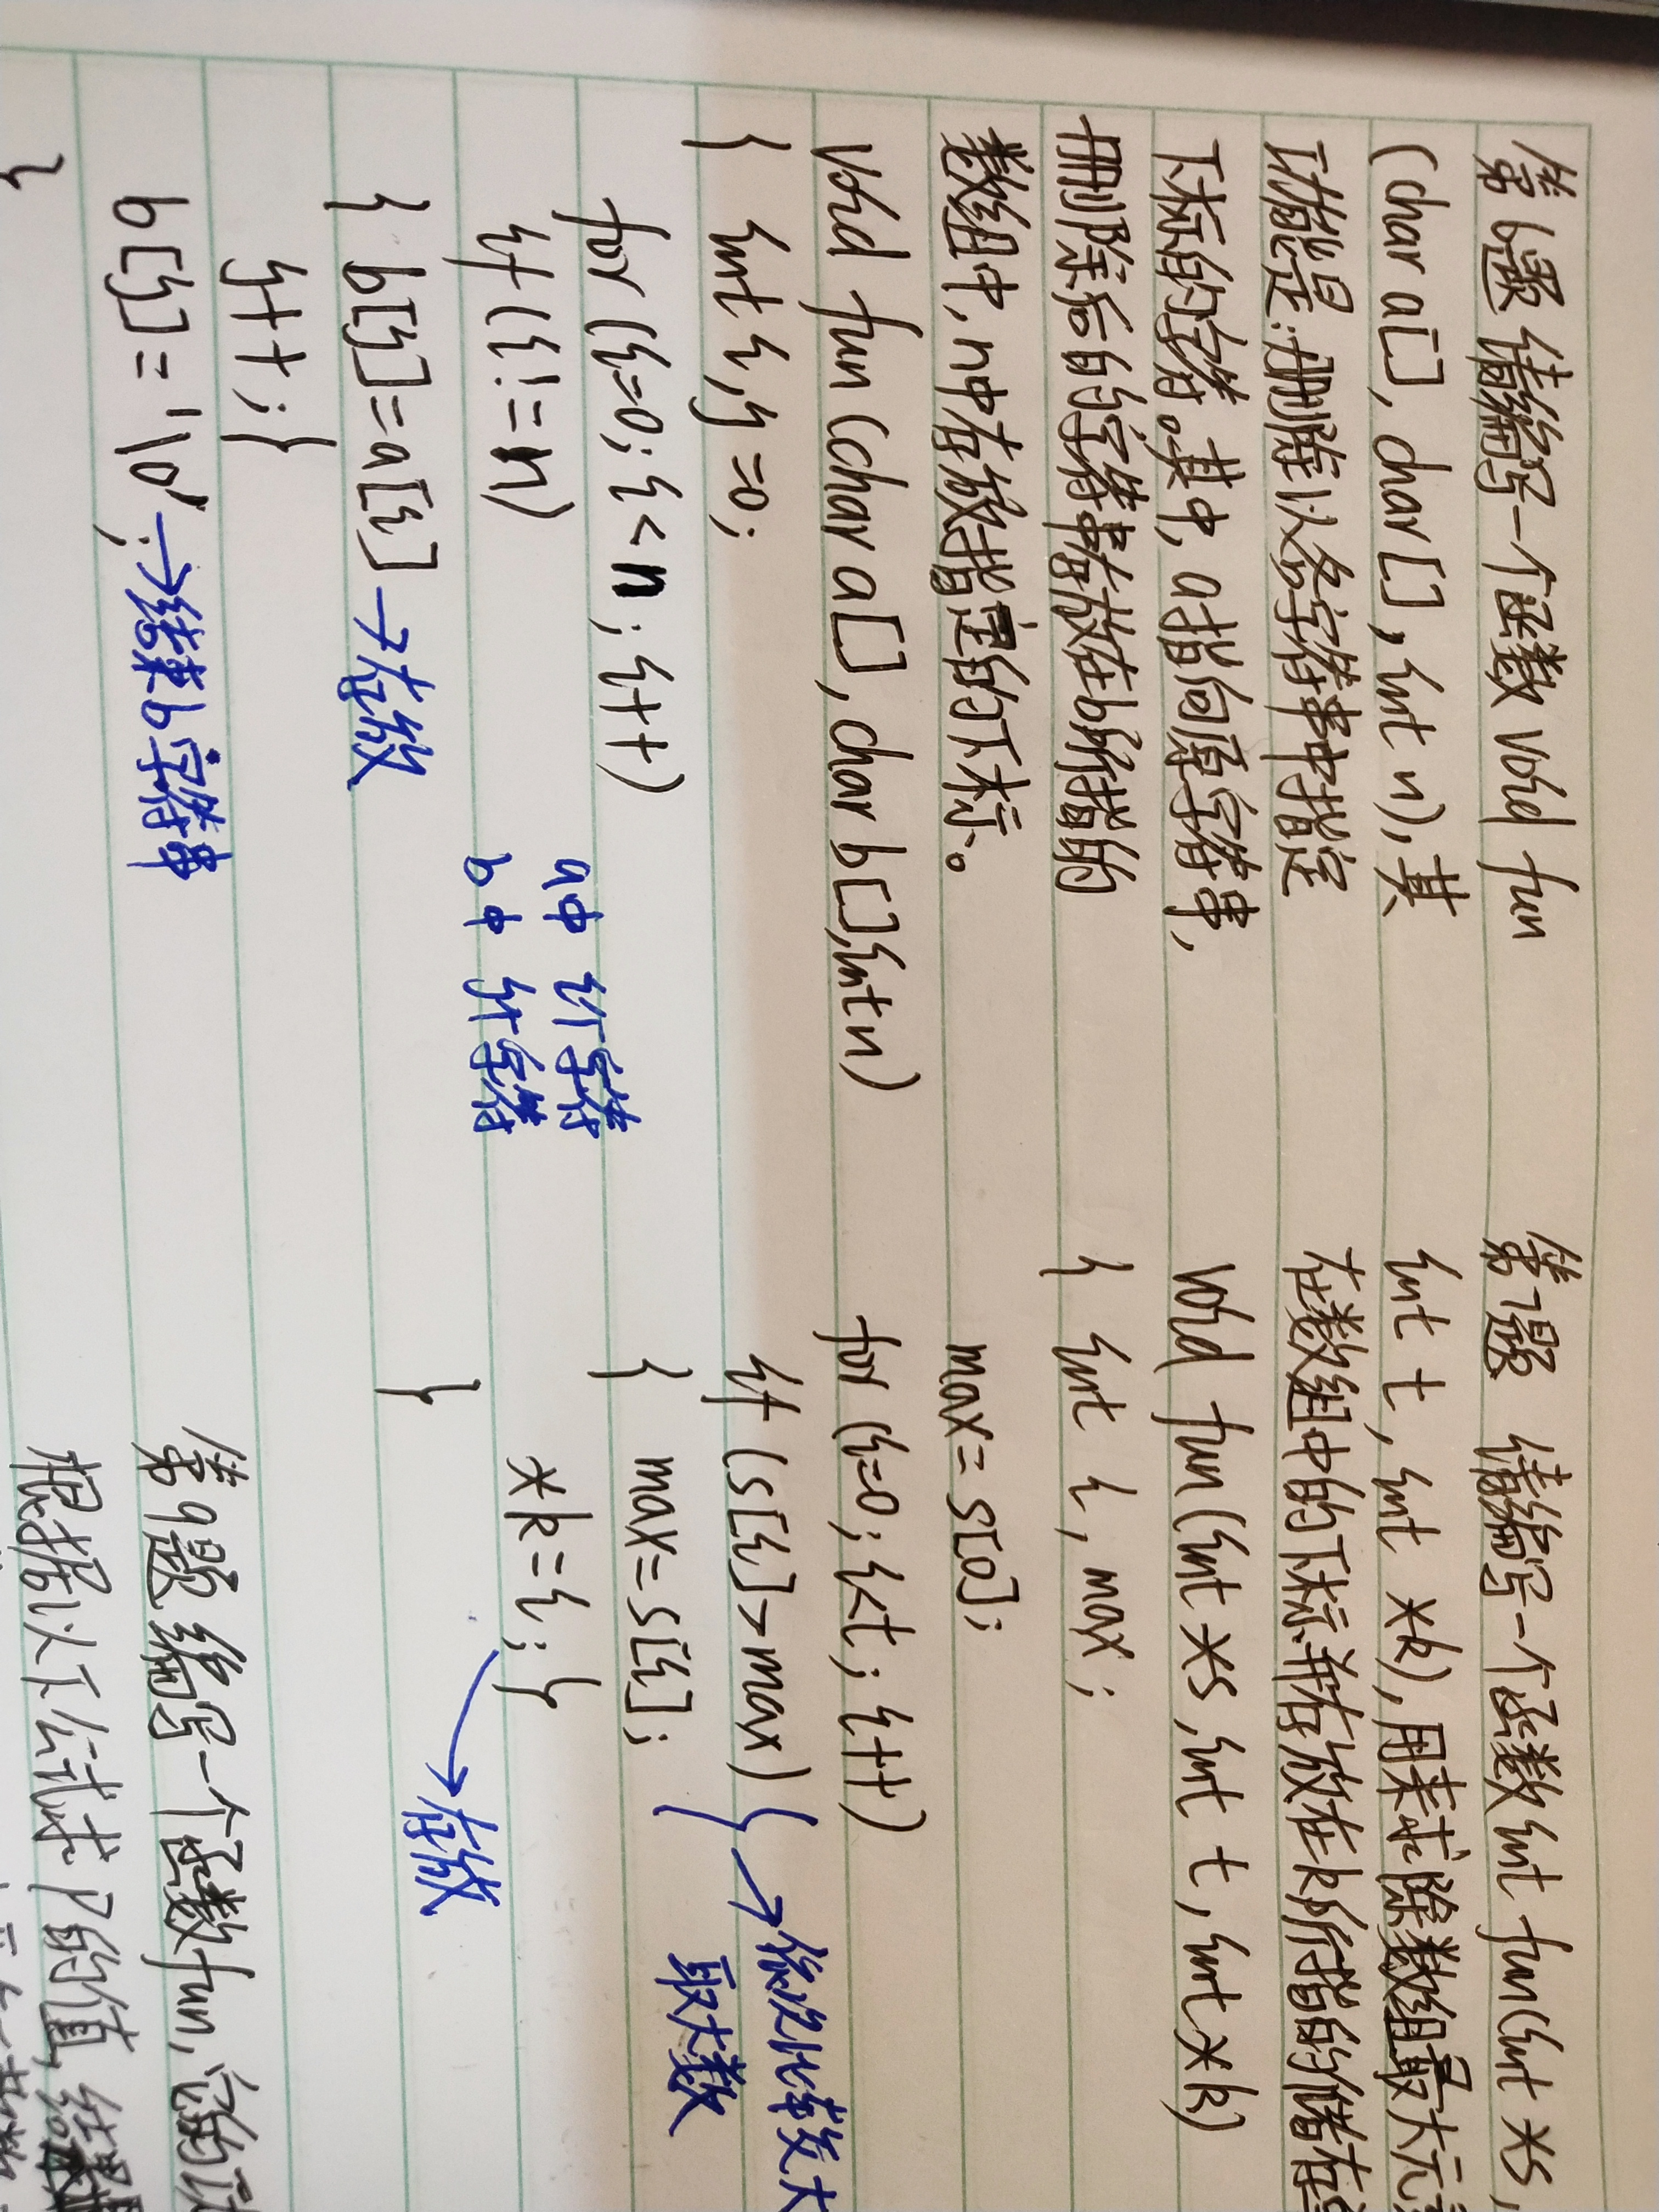 第6题 请编写一个函数 void fun
(char a[], char[], int n), 其
功能是:删除以各字符串中指定
下标的字符。其中, a指向原字符串,
删除后的字符串存放在b所指的
数组中, n中存放指定的下标。
void fun (char a[], char b[], int n)
{ int i, j =0;
for (i=0; i<n; i++)
if (i!=n)
a中 i个字符
b中 j个字符
{ b[j]=a[i] →存放
j++; }
b[j]='\0'; →结束b字符串
}
第7题 请编写一个函数 int fun(int *s,
int t, int *k), 用来求除数组最大元
在数组中的下标并存放在k所指的储存
void fun (int *s, int t, int *k)
{ int i, max;
max = s[0];
for (i=0; i<t; i++)
if (s[i]>max) } →依次比较大
{ max = s[i]; 取大数
*k = i; } →存放
}
第9题 编写一个函数fun,它的功
根据以下公式求P的值,结果